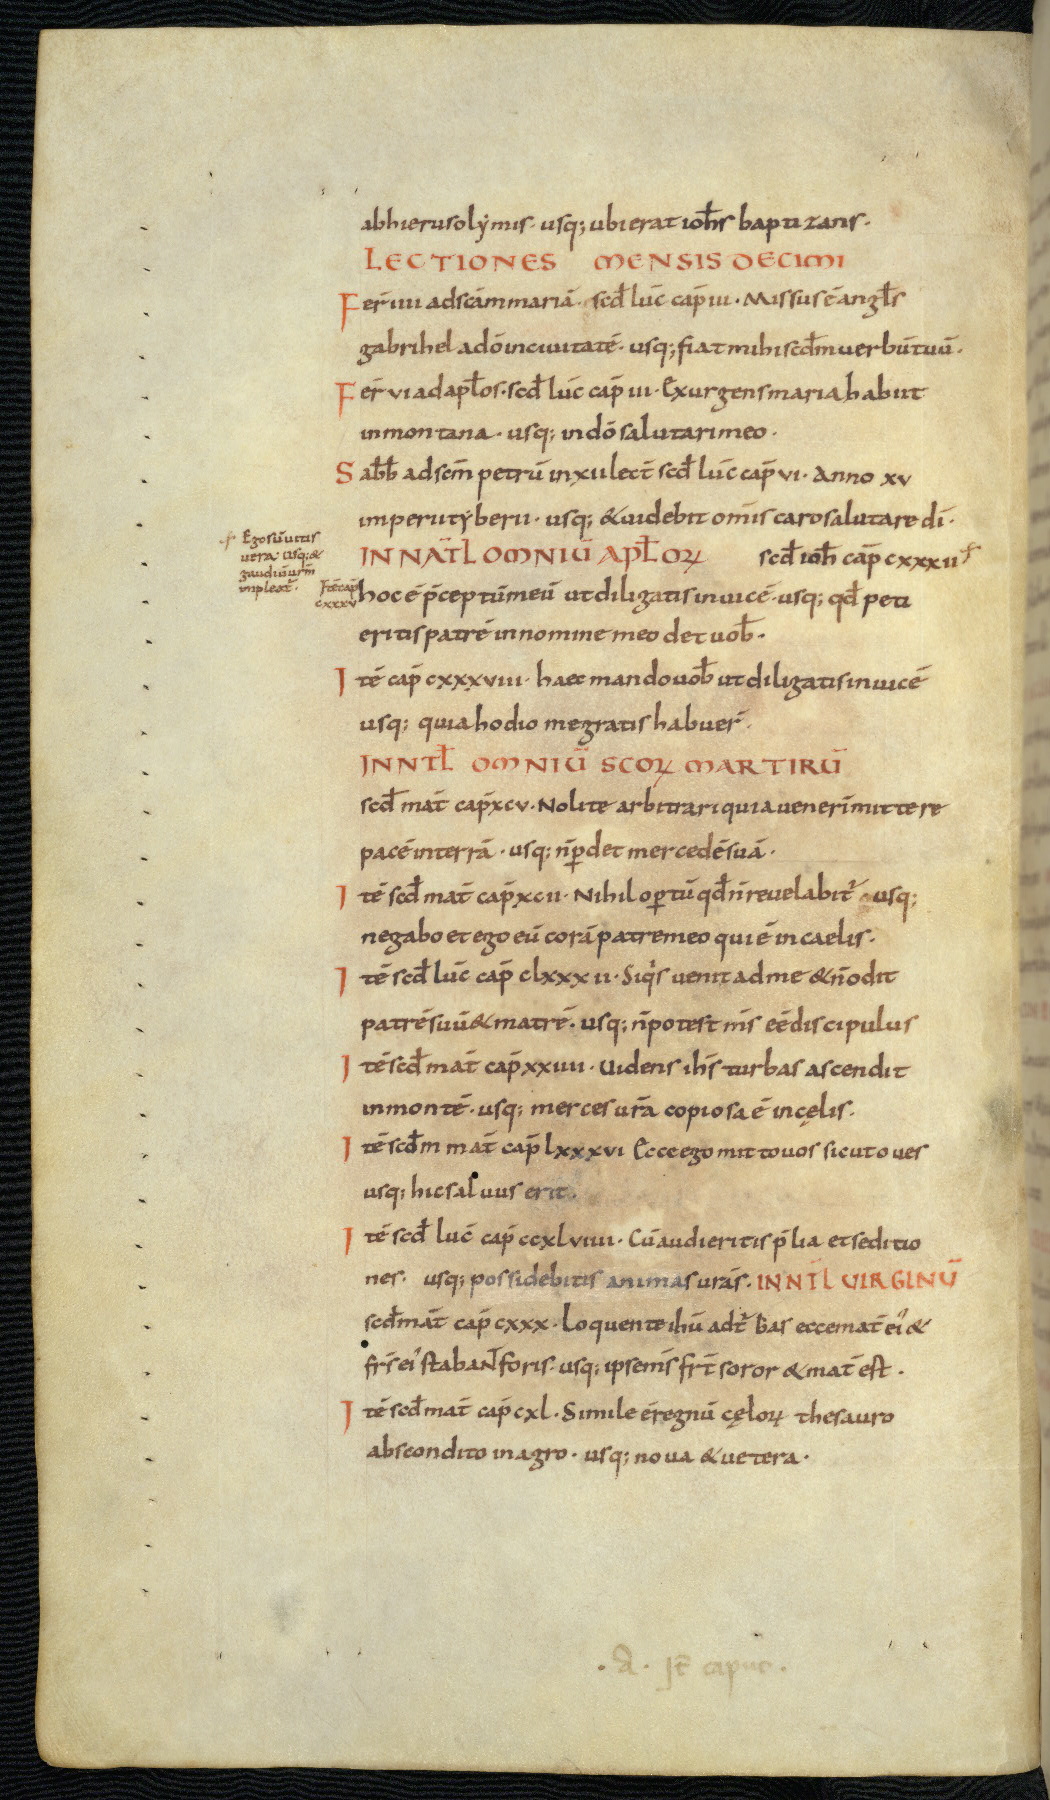 abhierusolẏmis· usq; ubi erat ioh̄s baptizans·
LECTIONES MENSIS DECIMI
Fer̄ iiii ad scām mariā· scd̄ luc̄ cap̄ iii· Missus ē angl̄s
gabrihel a dō in ciuitatē· usq; fiat mihi scd̄m uerbū tuū·
Fer̄ vi ad apl̄os· scd̄ luc̄ cap̄ iii· Exurgens maria habiit
in montana· usq; in dō salutari meo·
Sab̄b ad scm̄ petrū in xii lect̄ scd̄ luc̄ cap̄ vi· Anno xv
imperii tẏberii· usq; & uidebit omīs caro salutare dī·
IN NAT̄L OMNIŪ APL̄OꝜ scd̄ ioh̄ cap̄ cxxxii
Ego sū uitis
uera· usq; &
gaudiū ur̄m
impleat̄·
Itē cap̄
cxxxv
hoc ē p̄ceptū meū ut diligatis inuicē· usq; qd̄ peti
eritis patrē in nomine meo det uob̄·
Itē cap̄ cxxxviii· haec mando uob̄ ut diligatis inuicē
usq; quia hodio me gratis habuer̄·
IN NT̄L OMNIŪ SCOꝜ MARTIRŪ
scd̄ mat̄ cap̄ xcv· Nolite arbitrari quia uenerī mittere
pacē in terrā· usq; n̄ ꝑdet mercedē suā·
Itē scd̄ mat̄ cap̄ xcii· Nihil oꝑtū qd̄ n̄ reuelabit̄· usq;
negabo et ego eū corā patre meo qui ē in caelis·
Itē scd̄ luc̄ cap̄ clxxxii· Siqͥs uenit ad me & n̄ odit
patrē suū & matrē· usq; n̄ potest m̄s eē discipulus
Itē scd̄ mat̄ cap̄ xxiiii· Uidens ih̄s turbas ascendit
in montē· usq; merces ur̄a copiosa ē in cęlis·
Itē scd̄m mat̄ cap̄ lxxxvi Ecce ego mitto uos sicut oues
usq; hic saluus erit·
Itē scd̄ luc̄ cap̄ ccxlviiii· Cū audieritis p̄lia et seditio
nes· usq; possidebitis animas urās· IN NT̄L UIRGINŪ
scd̄ mat̄ cap̄ cxxx· Loquente ihū ad t̄bas ecce mat̄ ei᾽ &
fr̄s ei᾽ stabant foris· usq; ipse m̄s fr̄t soror & mat̄ est·
Itē scd̄ mat̄ cap̄ cxl· Simile ē regnū cęloꝝ thesauro
abscondito in agro· usq; noua & uetera·
·A· It̄ capit̄·